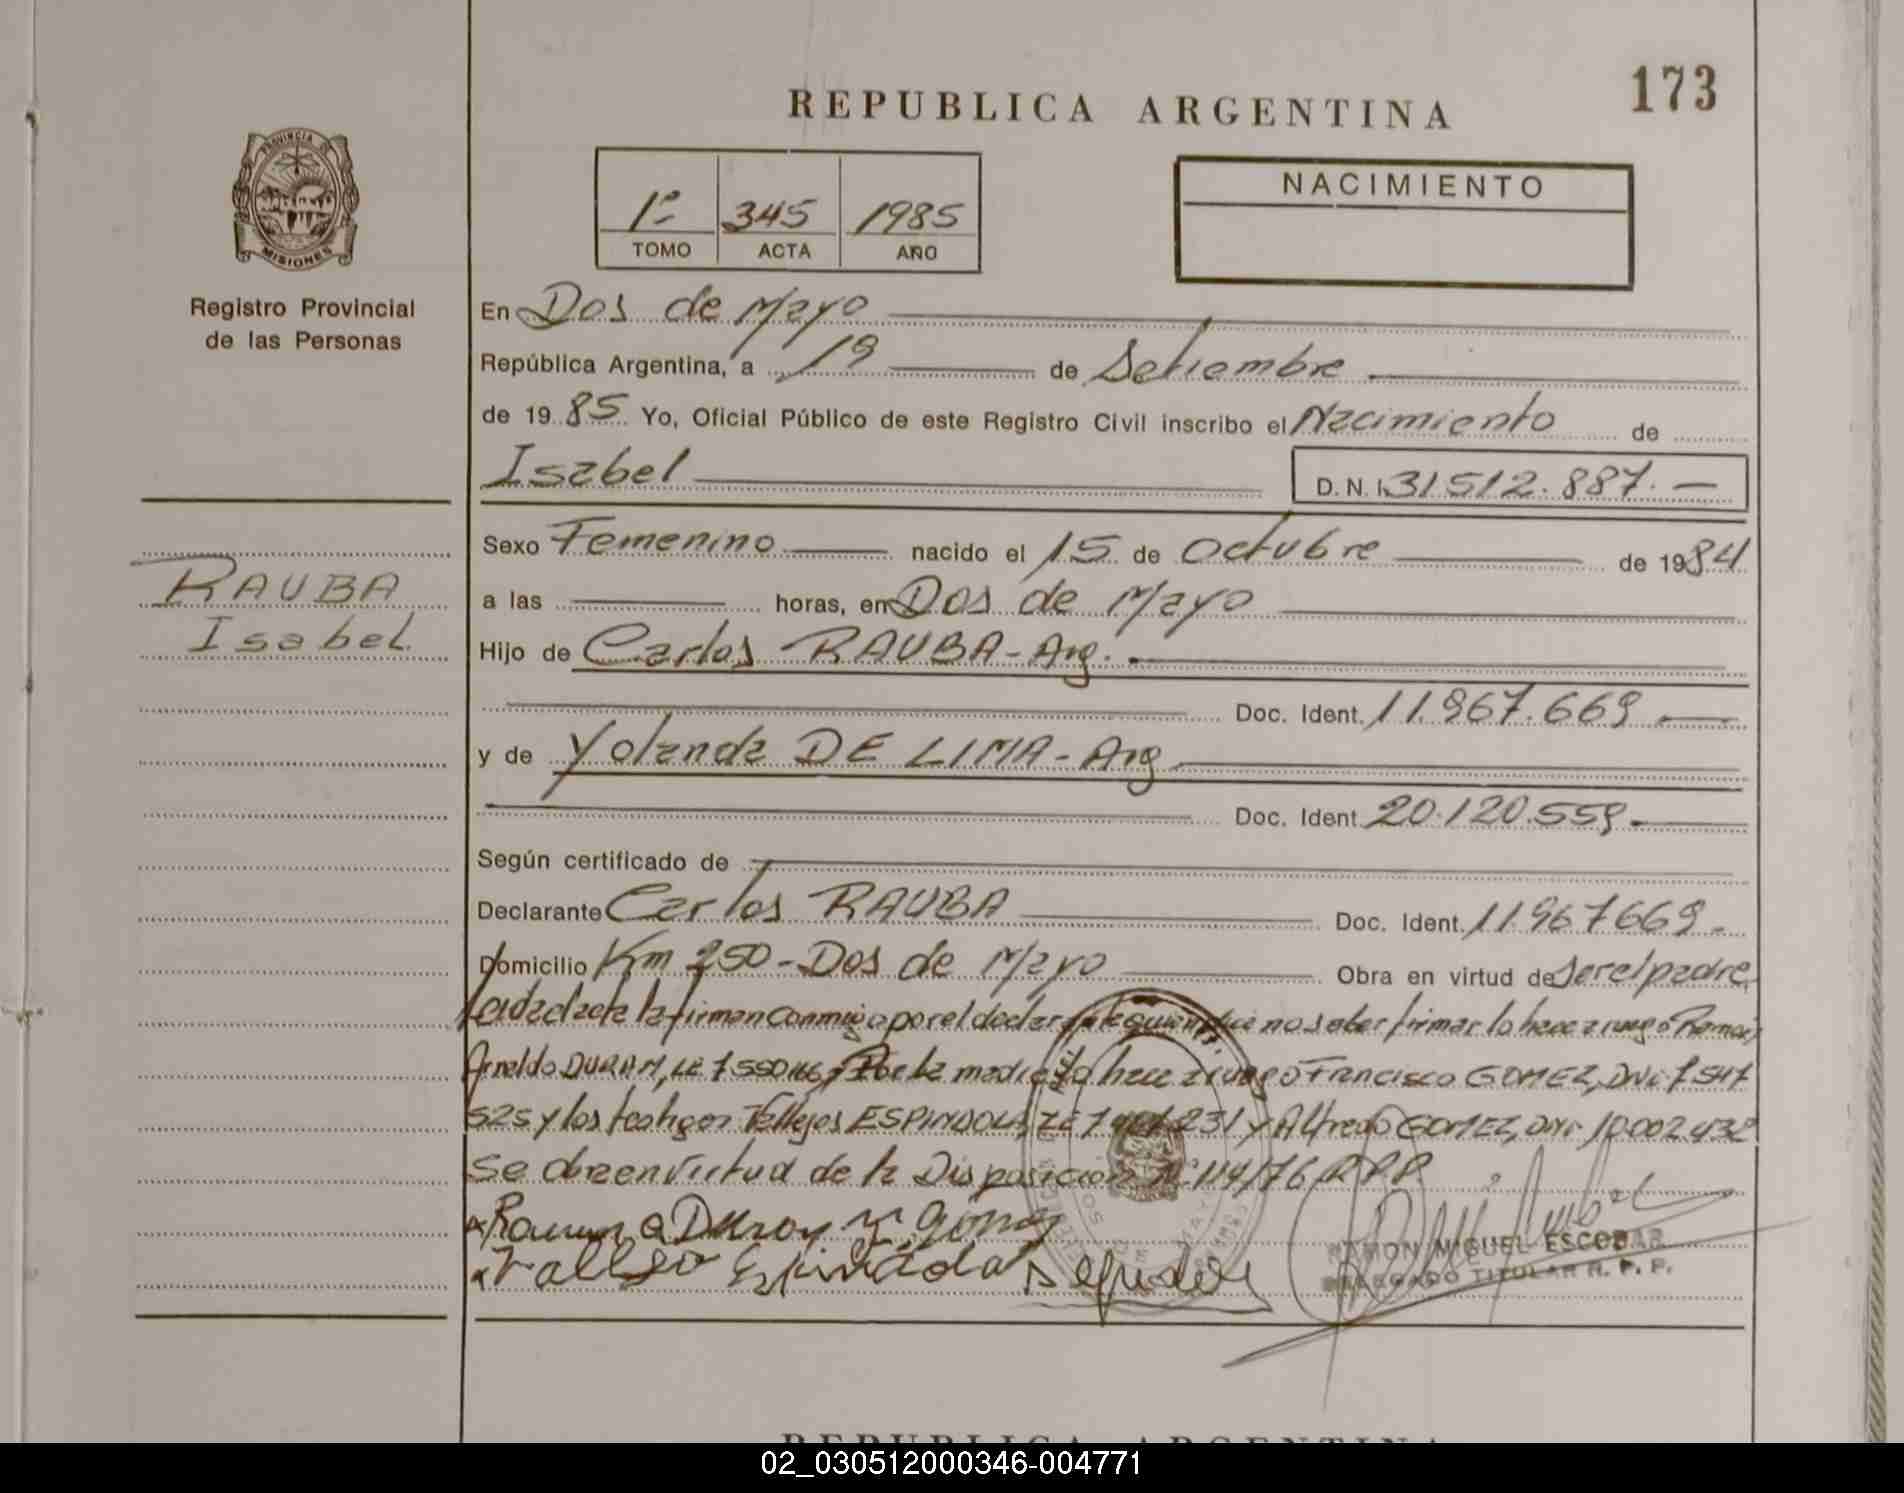 173
REPUBLICA ARGENTINA
PROVINCIA DE
MISIONES
Registro Provincial
de las Personas
1º 345 1985
TOMO ACTA AÑO
NACIMIENTO
En Dos de Mayo
República Argentina, a 19 de Setiembre
de 1985 Yo, Oficial Público de este Registro Civil inscribo el Nacimiento de
Isabel D. N. I. 31512.887.-
RAUBA
Isabel
Sexo Femenino nacido el 15 de octubre de 1984
a las horas, en Dos de Mayo
Hijo de Carlos RAUBA-Arg.
Doc. Ident. 11.967.669
y de Yolanda DE LIMA-Arg
Doc. Ident. 20.120.559.
Según certificado de
Declarante Carlos RAUBA Doc. Ident. 11.967669.
Domicilio Km 250-Dos de Mayo Obra en virtud de ser el padre
Leida el acta la firman conmigo por el declarante quien dice no saber firmar lo hace a ruego
Arnaldo DURAN, LE 7550 la madre lo hace a ruego Francisco GOMEZ, DNI 7.547
525 y los testigos Vallejos ESPINDOLA, LE 231 y Alfredo GOMEZ, DNI 10.002.432
se obra en virtud de la Disposición Nº 114/76 R.P.P.
Espindola
RAMON MIGUEL ESCOBAR
DELEGADO TITULAR R. P. P.
REPUBLICA ARGENTINA
02_030512000346-004771